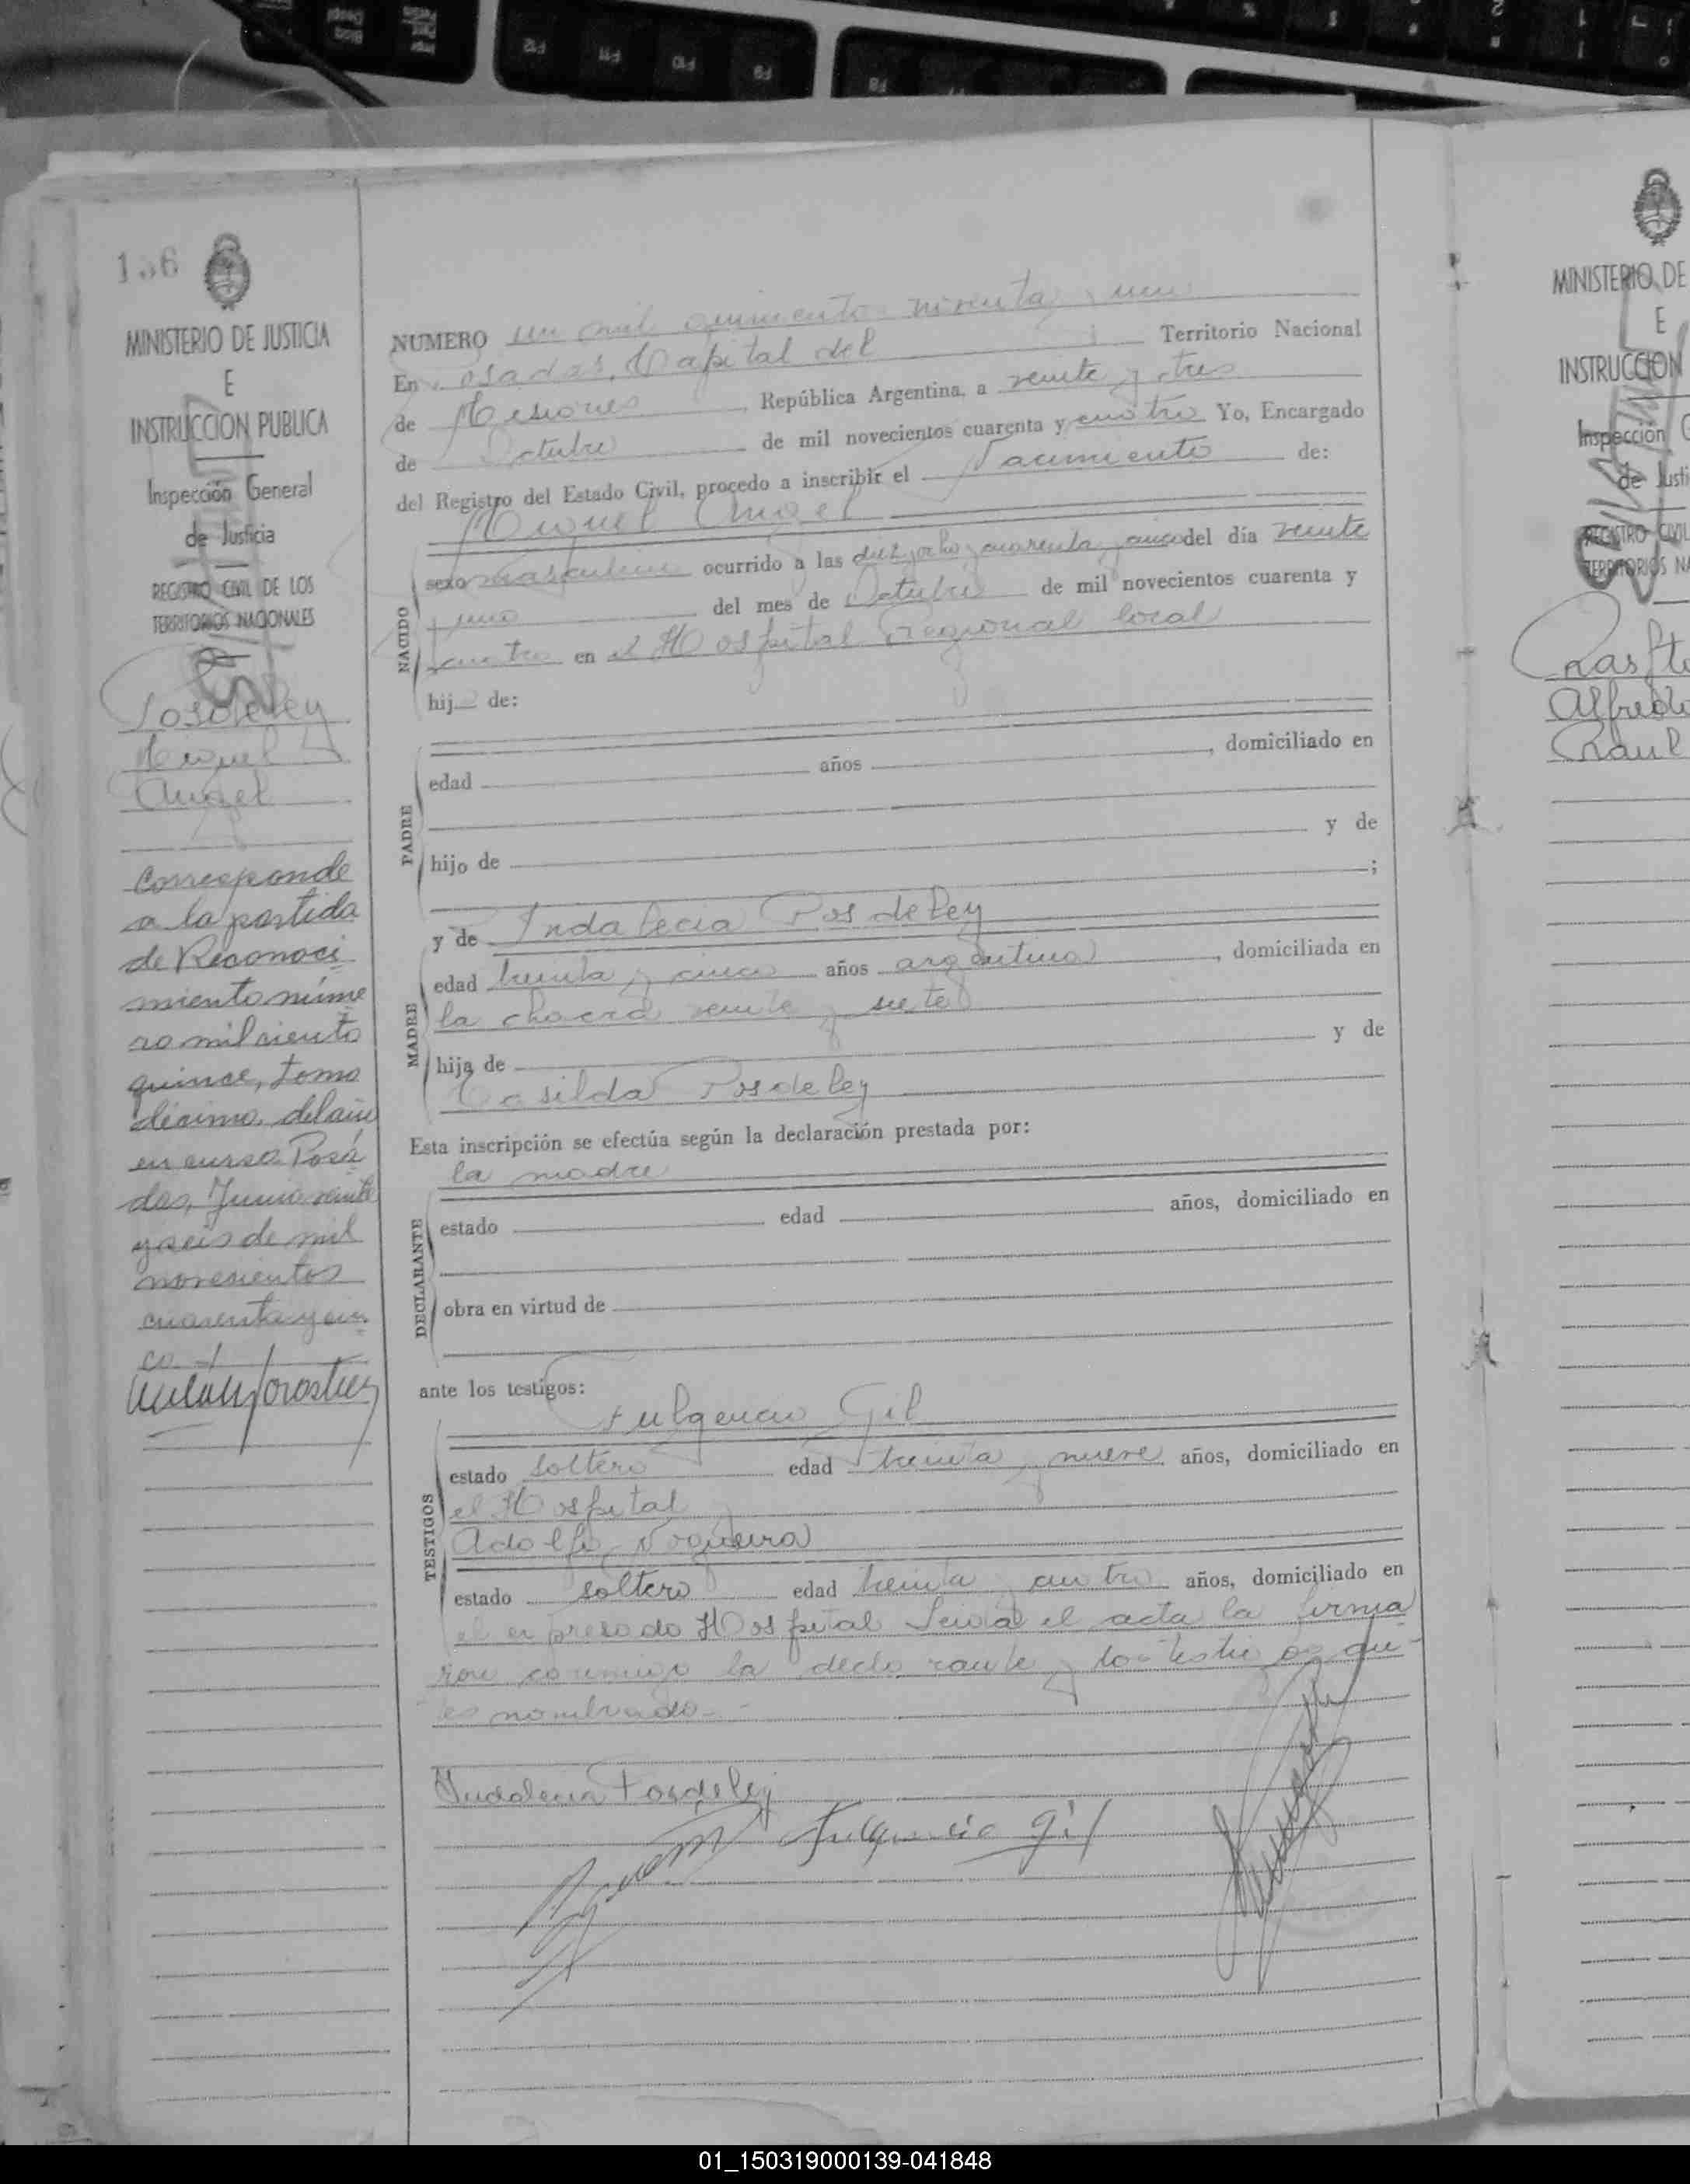 MINISTERIO DE JUSTICIA
E
INSTRUCCION PUBLICA
Inspección General
de Justicia
REGISTRO CIVIL DE LOS
TERRITORIOS NACIONALES
Posdeley
Miguel
Angel
Corresponde
a la partida
de Reconoci
miento núme
ro mil ciento
quince, tomo
décimo, del año
en curso Posa
das, Junio veinte
y seis de mil
novecientos
cuarenta y cin
co
NUMERO un mil quinientos noventa y uno
En Posadas, Capital del Territorio Nacional
de Misiones República Argentina, a veinte y tres
de Octubre de mil novecientos cuarenta y cuatro Yo, Encargado
del Registro del Estado Civil, procedo a inscribir el Nacimiento de:
Miguel Angel
NACIDO
sexo masculino ocurrido a las diez y ocho y cuarenta y cinco del día veinte
y uno del mes de Octubre de mil novecientos cuarenta y
cuatro en el Hospital Regional local
hij de:
PADRE
edad años , domiciliado en
hijo de y de
;
MADRE
y de Indalecia Posdeley
edad treinta y cinco años argentina , domiciliada en
la chacra veinte y siete
hija de y de
Casilda Posdeley
Esta inscripción se efectúa según la declaración prestada por:
la madre
DECLARANTE
estado edad años, domiciliado en
obra en virtud de
ante los testigos:
TESTIGOS
Fulgencio Gil
estado soltero edad treinta y nueve años, domiciliado en
el Hospital
Adolfo Nogueira
estado soltero edad treinta y cuatro años, domiciliado en
el expresado Hospital Leida el acta la firma
ron conmigo la declarante y los testigos
nombrados-
Indalecia Posdeley
Fulgencio Gil
MINISTERIO DE
E
INSTRUCCION
Inspección G
de Justi
REGISTRO CIVIL
TERRITORIOS NA
Alfredo
Raul
01_150319000139-041848